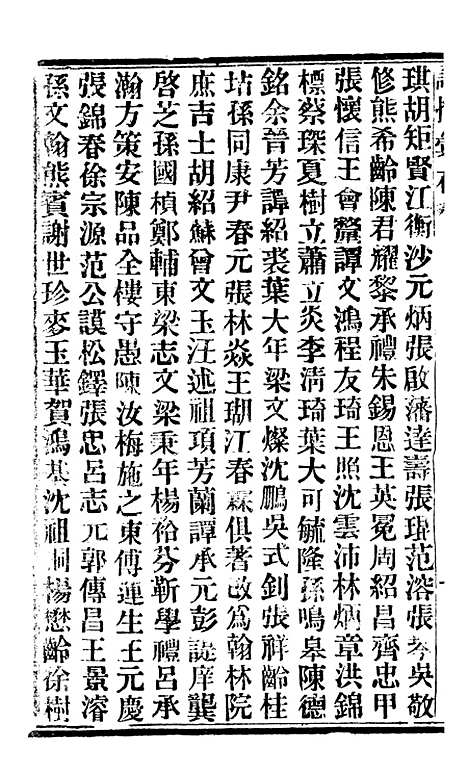 琪胡矩賢江衡沙元炳張啟藩達壽張琨范溶張岺吳敬
修熊希齡陳君耀黎承禮朱錫恩王英冕周紹昌齊忠甲
張懷信王會釐譚文鴻程友琦王照沈雲沛林炳章洪錦
標蔡琛夏樹立蕭立炎李清琦葉大可毓隆孫鳴皋陳德
銘余晉芳譚紹裘葉大年梁文燦沈鵬吳式釗張祥齡桂
坫孫同康尹春元張林焱王瑚江春霖俱著改為翰林院
庶吉士胡紹蘇曾文玉汪述祖項芳蘭譚承元彭諟庠龔
啓芝孫國楨鄭輔東梁志文梁秉年楊裕芬靳學禮呂承
瀚方策安陳品全樓守愚陳汝梅施之東傅運生王元慶
張錦春徐宗源范公謨松鐸張忠呂志元郭傳昌王景濬
孫文翰熊賓謝世珍麥玉華賀鴻基沈祖桐楊懋齡徐樹